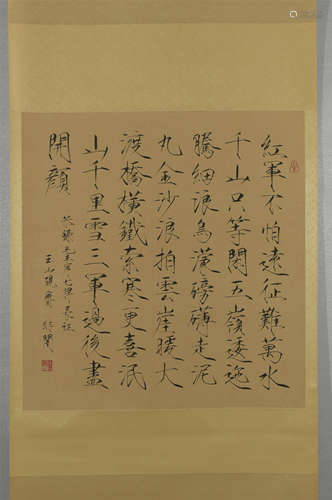 紅軍不怕遠征難萬水
千山只等閒五嶺逶迤
騰細浪烏蒙磅礴走泥
丸金沙浪拍雲崖暖大
渡橋橫鐵索寒更喜岷
山千里雪三軍過後盡
開顏
恭錄毛主席七律長征